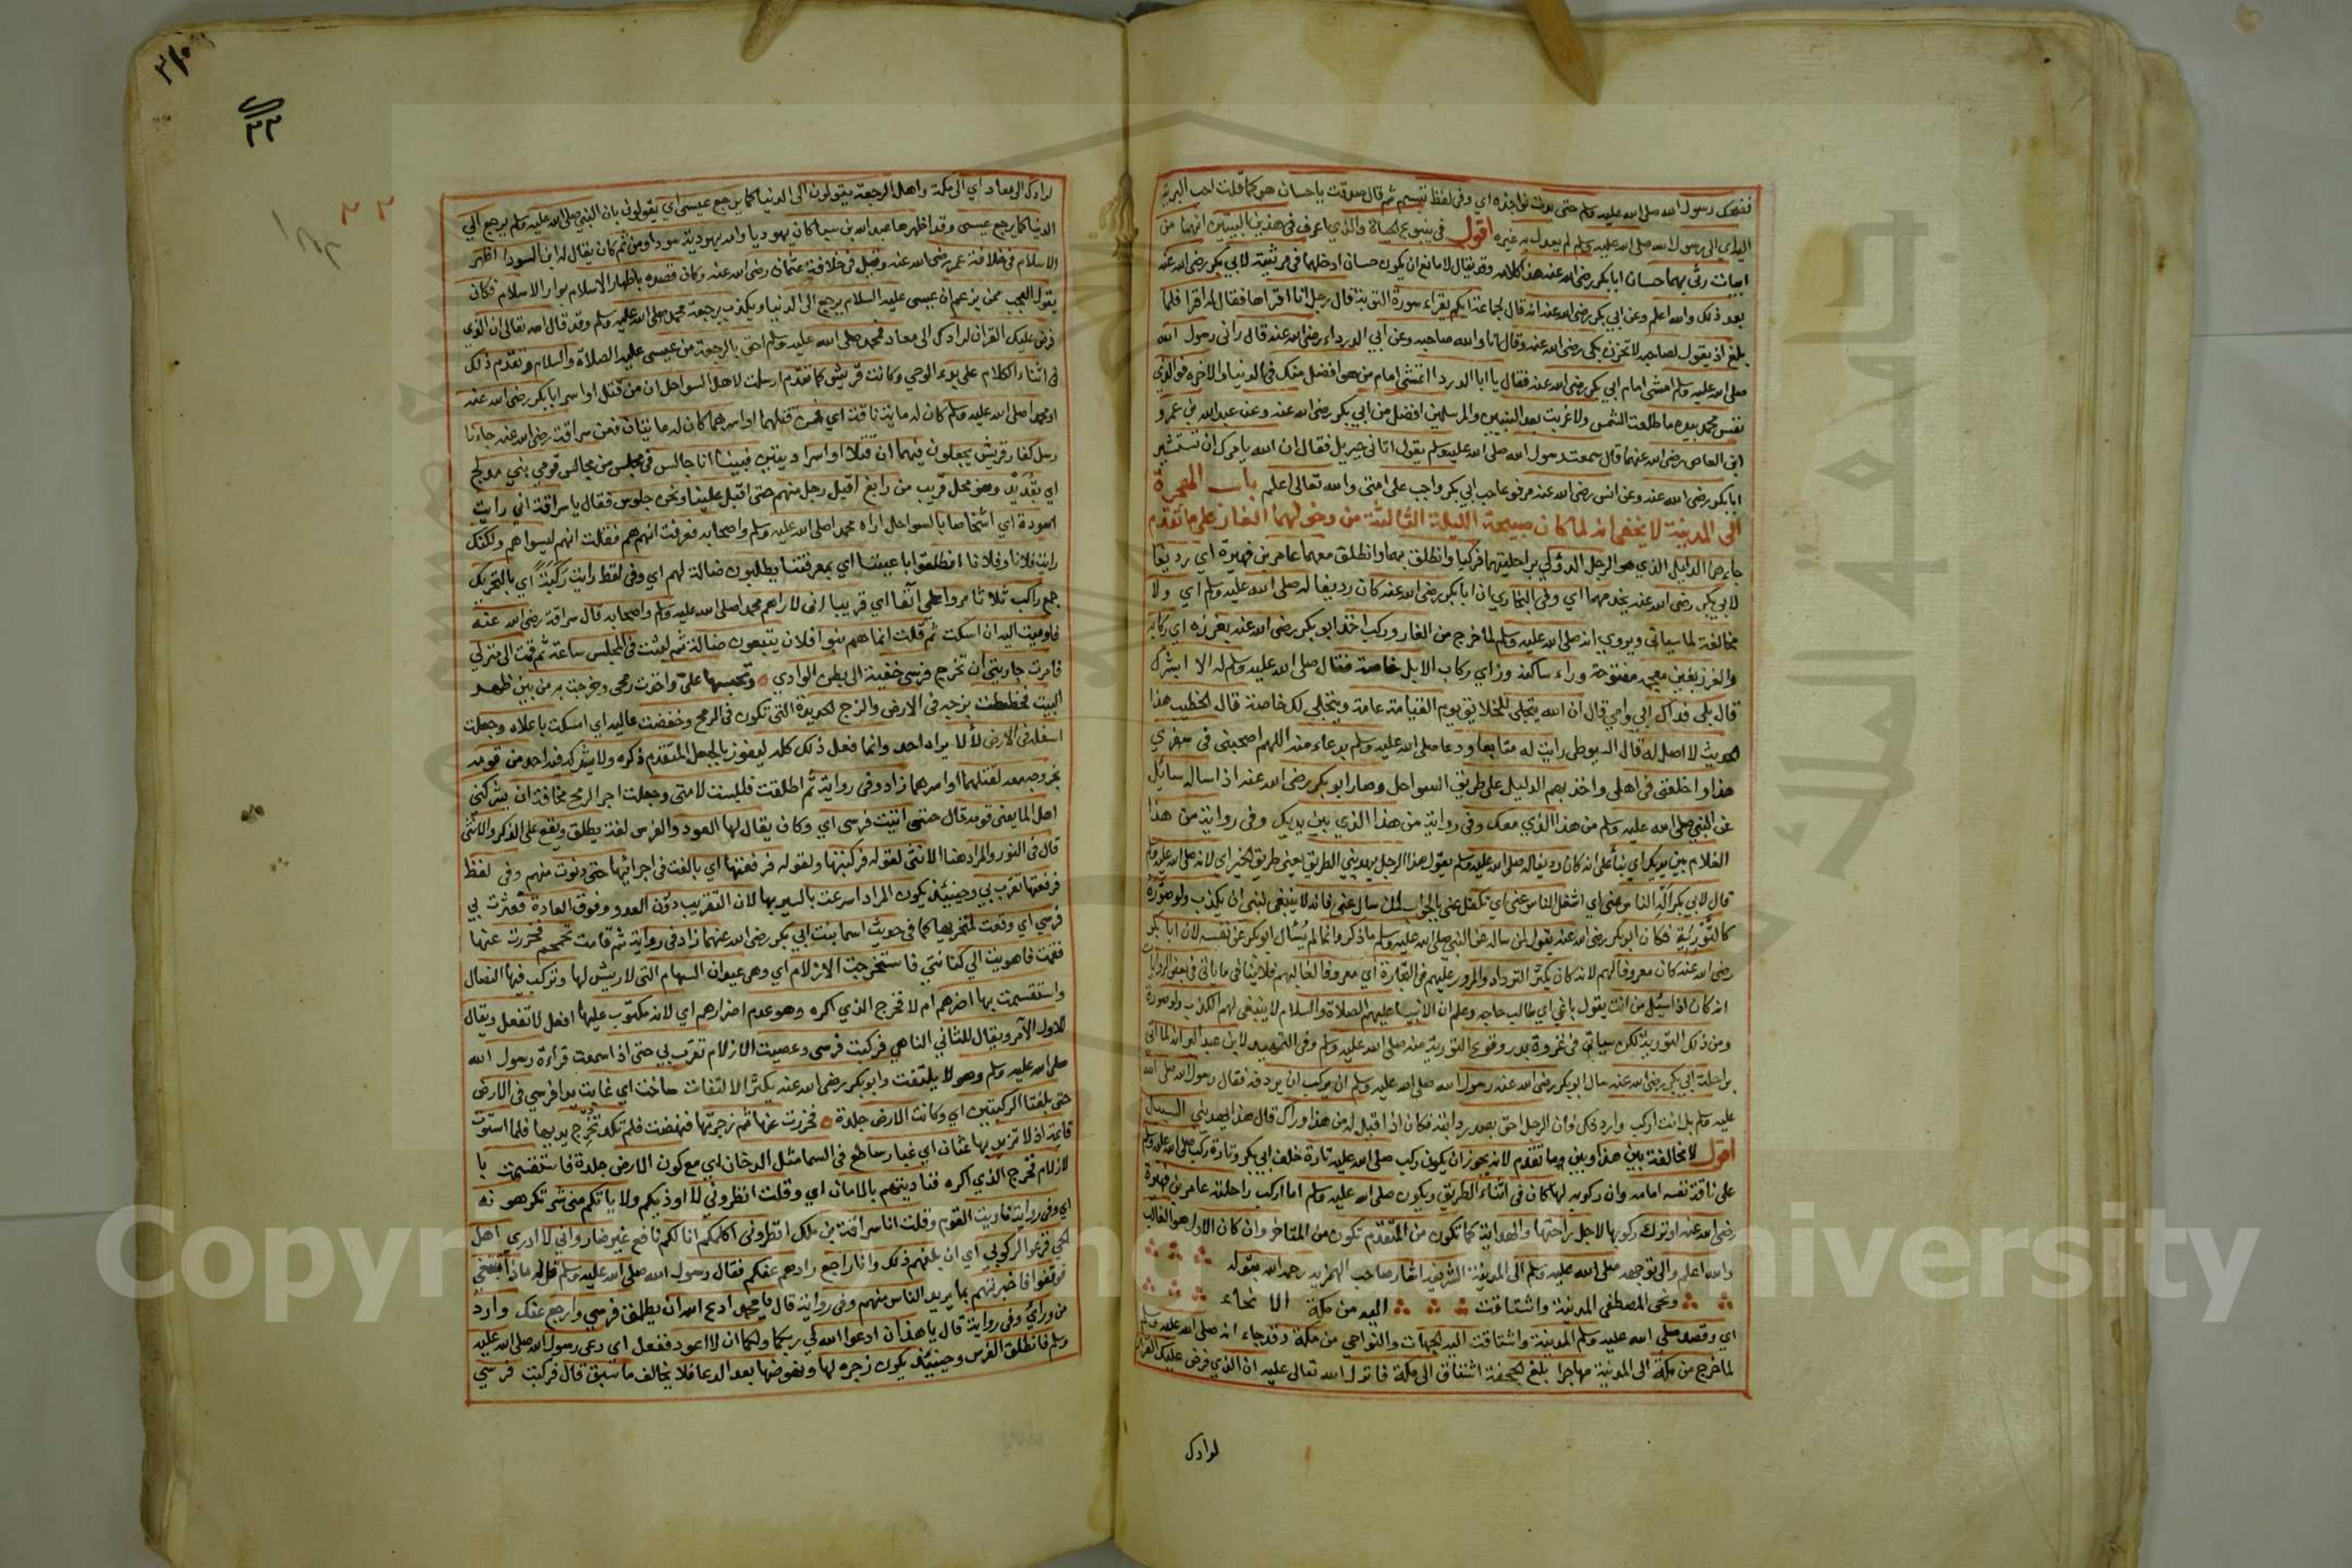 فضحك رسول الله صلى الله عليه وسلم حتى بدت نواجذه اي وفي لفظ تبسم ثم قال صدقت ياحسان هو كما قلت احب البرية
الي رسول الله صلى الله عليه وسلم لم يعدل به غيره اقول في ينبوع الحياة والذي اعرف في هذين البيتين انهما من
ابيات رثى بهما حسان ابابكر رضي الله عنه هذا كلامه وقد يقال لا مانع ان يكون حسان ادخلهما في مرثيته لابي بكر رضي الله عنه
بعد ذلك والله اعلم وعن ابي بكر رضي الله عنه انه قال لجماعة ايكم يقراء سورة التوبة قال رجل انا اقراها فقال له اقرا فلما
بلغ اذ يقول لصاحبه لا تحزن بكى رضي الله عنه وقال انا والله صاحبه وعن ابي الدرداء رضي الله عنه قال راني رسول الله
صلى الله عليه وسلم امشي امام ابي بكر رضي الله عنه فقال يا ابا الدردا اتمشي امام من هو افضل منك في الدنيا والاخره فوالذي
نفس محمد بيده ما طلعت الشمس ولا غربت بعد النبيين والمرسلين افضل من ابي بكر رضي الله عنه وعن عبد الله بن عمرو
ابن العاص رضي الله عنهما قال سمعت رسول الله صلى الله عليه وسلم يقول اتاني جبريل فقال ان الله يامرك ان تستشير
ابا بكر رضي الله عنه وعن انس رضي الله عنه مرفوعا حب ابي بكر واجب على امتي والله تعالى اعلم باب الهجرة
الى المدينة لا يخفى انه لما كان صبيحة الليلة الثالثة من دخولهما الغار على ما تقدم
جاءهما الدليل الذي هو الرجل الدؤلي براحلتيهما فركبا وانطلق بهما وانطلق معهما عامر بن فهيرة اي رديفا
لابي بكر رضي الله عنه يخدمهما اي وفي البخاري ان ابا بكر رضي الله عنه كان رديفا له صلى الله عليه وسلم اي ولا
مخالفة لما سياتي ويروي انه صلى الله عليه وسلم لما خرج من الغار وركب اخذ ابو بكر رضي الله عنه بغرزه اي ركابه
والغرز بغين معجمه مفتوحة وراء ساكنه وزاي ركاب الابل خاصة فقال صلى الله عليه وسلم له الا ابشرك
قال بلى فداك ابي وامي قال ان الله يتجلى للخلايق يوم القيامة عامة ويتجلى لك خاصة قال الخطيب هذا
الحديث لا اصل له قال السيوطي رايت له متابعا ودعا صلى الله عليه وسلم بدعاء منه اللهم اصحبني في سفري
هذا واخلفني في اهلي واخذ بهم الدليل على طريق السواحل وصار ابو بكر رضي الله عنه اذا ساله سايل
عن النبي صلى الله عليه وسلم من هذا الذي معك وفي رواية من هذا الذي بين يديك وفي رواية من هذا
الغلام بين يديك اي بناء على انه كان رديفا له صلى الله عليه وسلم يقول هذا الرجل يهديني الطريق يعني طريق الخير اي لانه صلى الله عليه وسلم
قال لابي بكر اله الناس عني اي اشغل الناس عني اي تكفل عني بالجواب لمن سال عني فانه لا ينبغي لنبي ان يكذب ولو صورة
كالتورية فكان ابو بكر رضي الله عنه يقول لمن ساله عن النبي صلى الله عليه وسلم ما ذكر وانما لم يسال ابو بكر عن نفسه لان ابا بكر
رضي الله عنه كان معروفا لهم لانه كان يكثر التردد والمرور عليهم في التجارة اي معروفا لغالبهم فلا ينافي ما ياتي في بعض الروايات
انه كان اذا سئل من انت يقول باغي اي طالب حاجه وعلم ان الانبيا عليهم الصلاة والسلام لا ينبغي لهم الكذب ولو صورة
ومن ذلك التورية لكن سياتي في غزوة بدر وقوع التورية منه صلى الله عليه وسلم وفي التمهيد لابن عبد البر انه لما اتي
براحلة ابي بكر رضي الله عنه سال ابو بكر رضي الله عنه رسول الله صلى الله عليه وسلم ان يركب ان يردفه فقال رسول الله صلى الله
عليه وسلم بل انت اركب واردفك فان الرجل احق بصدر دابته فكان اذا اقبل له من هذا وراك قال هذا يهديني السبيل
اقول لا مخالفة بين هذا وبين ما تقدم لانه يجوز ان يكون ركب صلى الله عليه تارة خلف ابي بكر وتارة ركب صلى الله عليه وسلم
على ناقة نفسه امامه وان ركوبه لها كان في اثناء الطريق ويكون صلى الله عليه وسلم اما اركب راحلته عامر بن فهيرة
رضي الله عنه او ترك ركوبها لاجل راحتها والهداية كما تكون من المتقدم تكون من المتاخر وان كان الاول هو الغالب
والله اعلم والى توجهه صلى الله عليه وسلم الى المدينة الشريفة اشار صاحب الهمزيه رحمه الله بقوله
ونحى المصطفى المدينة واشتاقت اليه من مكة الانحاء
اي وقصد صلى الله عليه وسلم المدينة واشتاقت اليه الجهات والنواحي من مكة وقد جاء انه صلى الله عليه وسلم
لما خرج من مكة الى المدينة مهاجرا بلغ الجحفة اشتاق الى مكة فانزل الله تعالى عليه ان الذي فرض عليك القران
لرادك
٣٣
لرادك الى معاد اي الى مكة واهل الرجعة يقولون الى الدنيا كما يرجع عيسى اي يقولون بان النبي صلى الله عليه وسلم يرجع الي
الدنيا كما يرجع عيسى وقد اظهرها عبد الله بن سبا كان يهوديا وامه يهودية سودا ومن ثم كان يقال له ابن السودا اظهر
الاسلام في خلافة عمر رضي الله عنه وقيل في خلافة عثمان رضي الله عنه وكان قصده باظهار الاسلام بوار الاسلام فكان
يقول العجب ممن يزعم ان عيسى عليه السلام يرجع الى الدنيا ويكذب برجعة محمد صلى الله عليه وسلم وقد قال الله تعالى ان الذي
فرض عليك القران لرادك الى معاد فمحمد صلى الله عليه وسلم احق بالرجعة من عيسى عليه الصلاة والسلام وتقدم ذلك
في اثناء الكلام على بدء الوحي وكانت قريش كما تقدم ارسلت لاهل السواحل ان من قتل او اسر ابا بكر رضي الله عنه
او محمدا صلى الله عليه وسلم كان له ماية ناقة اي فمن قتلهما او اسرهما كان له مايتان فعن سراقة رضي الله عنه جاءنا
رسل كفار قريش يجعلون فيهما ان قتلا او اسرا ديتين فبينما انا جالس في مجلس من مجالس قومي بني مدلج
اي بقديد وهو محل قريب من رابغ اقبل رجل منهم حتى اقبل علينا ونحن جلوس فقال ياسراقة اني رايت
اسودة اي اشخاصا بالسواحل اراه محمدا صلى الله عليه وسلم واصحابه فعرفت انهم هم فقلت انهم ليسوا هم ولكنك
رايت فلانا وفلانا انطلقوا باعيننا اي بمعرفتنا يطلبون ضالة لهم اي وفي لفظ رايت ركبة اي بالتحريك
جمع راكب ثلاثا مروا علي آنفا اي قريبا اني لاراهم محمدا صلى الله عليه وسلم واصحابه قال سراقة رضي الله عنه
فاوميت اليه ان اسكت ثم قلت انما هم بنو افلان يتبعون ضالة ثم لبثت في المجلس ساعة ثم قمت الى منزلي
فامرت جاريتي ان تخرج فرسي خفية الى بطن الوادي وتحبسها علي واخذت رمحي وخرجت به من بين ظهر
البيت فخططت بزجه في الارض والزج الحديدة التي تكون في الرمح وخفضت عاليه اي امسكت باعلاه وجعلت
اسفله في الارض لألا يراه احد وانما فعل ذلك كله ليفوز بالجعل المتقدم ذكره ولا يشركه فيه احد من قومه
بخروجه معه لقتلهما او اسرهما زاد وفي رواية ثم انطلقت فلبست لامتي وجعلت اجر الرمح مخافة ان يشركني
اهل الماء يعني قومه قال حتى اتيت فرسي اي وكان يقال لها العود والفرس لغة يطلق ويقع على الذكر والانثى
قال في النور والمراد هنا الانثى لقوله فركبتها ولقوله فرفعتها اي بالغت في اجرائها حتى دنوت منهم وفي لفظ
فرفعتها تقرب بي وحينئذ يكون المراد اسرعت بالسير بها لان التقريب دون العدو وفوق العادة فعثرت بي
فرسي اي وقعت لمنخريها كما في حديث اسما بنت ابي بكر رضي الله عنهما زاد في رواية ثم قامت تحمحم فخررت عنها
فقمت فاهويت الي كنانتي فاستخرجت الازلام اي وهي عيدان السهام التي لا ريش لها وتركب فيها النصال
واستقسمت بها اضرهم ام لا فخرج الذي اكره وهو عدم اضرارهم اي لانه مكتوب عليها افعل لا تفعل ويقال
للاول الآمر ويقال للثاني الناهي فركبت فرسي وعصيت الازلام تقرب بي حتى اذا سمعت قراءة رسول الله
صلى الله عليه وسلم وهو لا يلتفت وابو بكر رضي الله عنه يكثر الالتفات ساخت اي غابت يدا فرسي في الارض
حتى بلغتا الركبتين اي وكانت الارض جلدة فخررت عنها ثم زجرتها فنهضت فلم تكد تخرج يديها فلما استوت
قايمة اذ لاثر يديها عثان اي غبار ساطع في السما مثل الدخان اي مع كون الارض جلدة فاستقسمت با
لازلام فخرج الذي اكره فناديتهم بالامان اي وقلت انظروني لا اوذيكم ولا ياتكم مني شر تكرهونه
اي وفي رواية ناديت القوم وقلت انا سراقة بن ملك انظروني اكلمكم انا لكم نافع غير ضار واني لا ادري اهل
الحي فزعوا لركوبي اي ان بلغهم ذلك وانا راجع رادهم عنكم فقال رسول الله صلى الله عليه وسلم قل له ماذا تبتغي
فوقفوا فاخبرتهم بما يريد الناس منهم وفي رواية قال يا محمد ادع الله ان يطلق فرسي وارجع عنك وارد
من ورائي وفي رواية قال يا هذان ادعوا الله لي ربكما ولكما ان لا اعود ففعل اي دعى رسول الله صلى الله عليه
وسلم فانطلق الفرس وحينئذ يكون زجره لها ونهوضها بعد الدعا فلا يخالف ما سبق قال فركبت فرسي
Copyright © King Saud University